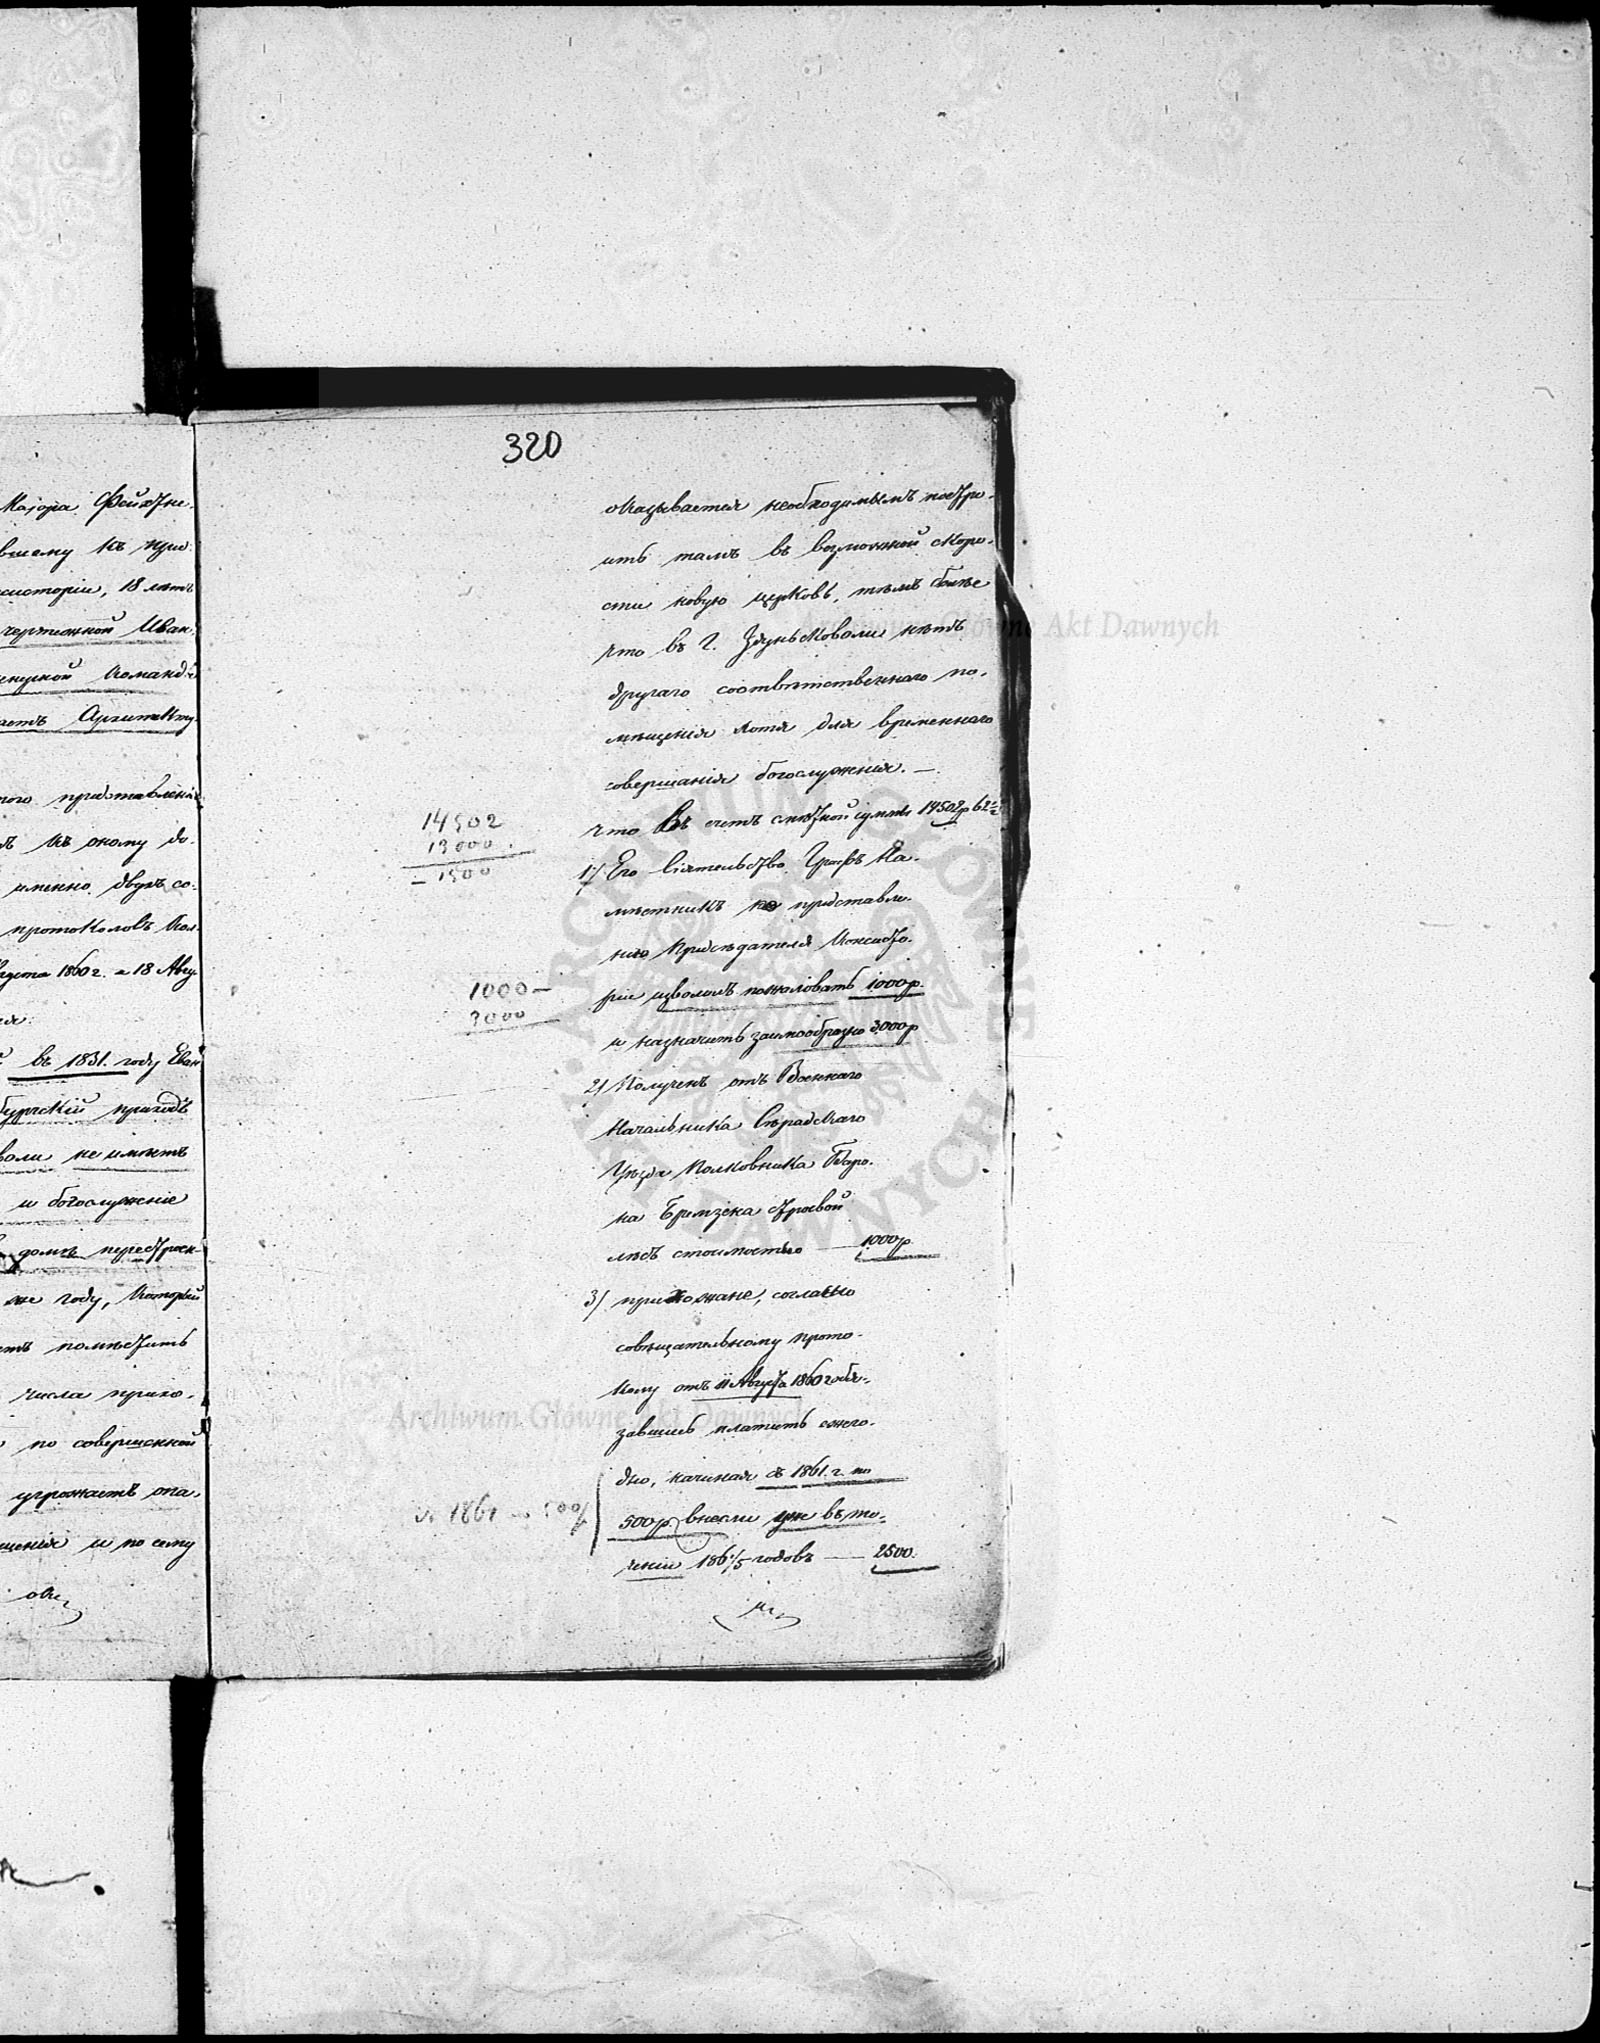 Маіора Фейхтне-
вшему къ при-
систоріи, 18 летъ
чертежной Иван-
женерной Команд
аетъ Архитекту-
ного представленія
ъ къ оному до-
именно двухъ со-
протоколовъ Кол-
Августа 1860 г. и 18 Авгу-
ся:
въ 1831. году Еван
бургскій приходъ
воли не имѣетъ
и богослуженіе
домѣ перестроен-
же году, который
етъ помѣстить
числа прихо-
по совершенной
угрожаетъ опа-
щенія и по сему
ока-
320
оказывается необходимымъ постро-
ить тамъ въ возможной скоро-
сти новую церковь, тѣмъ болѣе
что въ г. Здунсковоли нѣтъ
другаго соотвѣтственнаго по-
мѣщенія хотя для временнаго
совершанія богослуженія. —
что Въ счетъ смѣтной суммы 14502 р 62½
14502
13000.
– 1500
1/ Его Сіятельство Графъ На-
мѣстникъ по представле-
нію Предсѣдателя Консисто-
ріи изволилъ пожаловать 1000 р.
1000 —
3000
и назначить заимообразно 3000 р
2/ Полученъ отъ Военнаго
Начальника Сѣрадскаго
Уѣзда Полковника Баро-
на Бремзена строевой
лѣсъ стоимостью — 1000 р
3/ прихожане, согласно
совѣщательному прото-
колу отъ 11 Августа 1860 обя-
завшись платить ежего-
дно, начиная съ 1861. г. по
500 р. внесли уже въ те-
1861 500
ченіи 1861/5 годовъ — 2500.
Archiwum Główne Akt Dawnych
Archiwum Główne Akt Dawnych